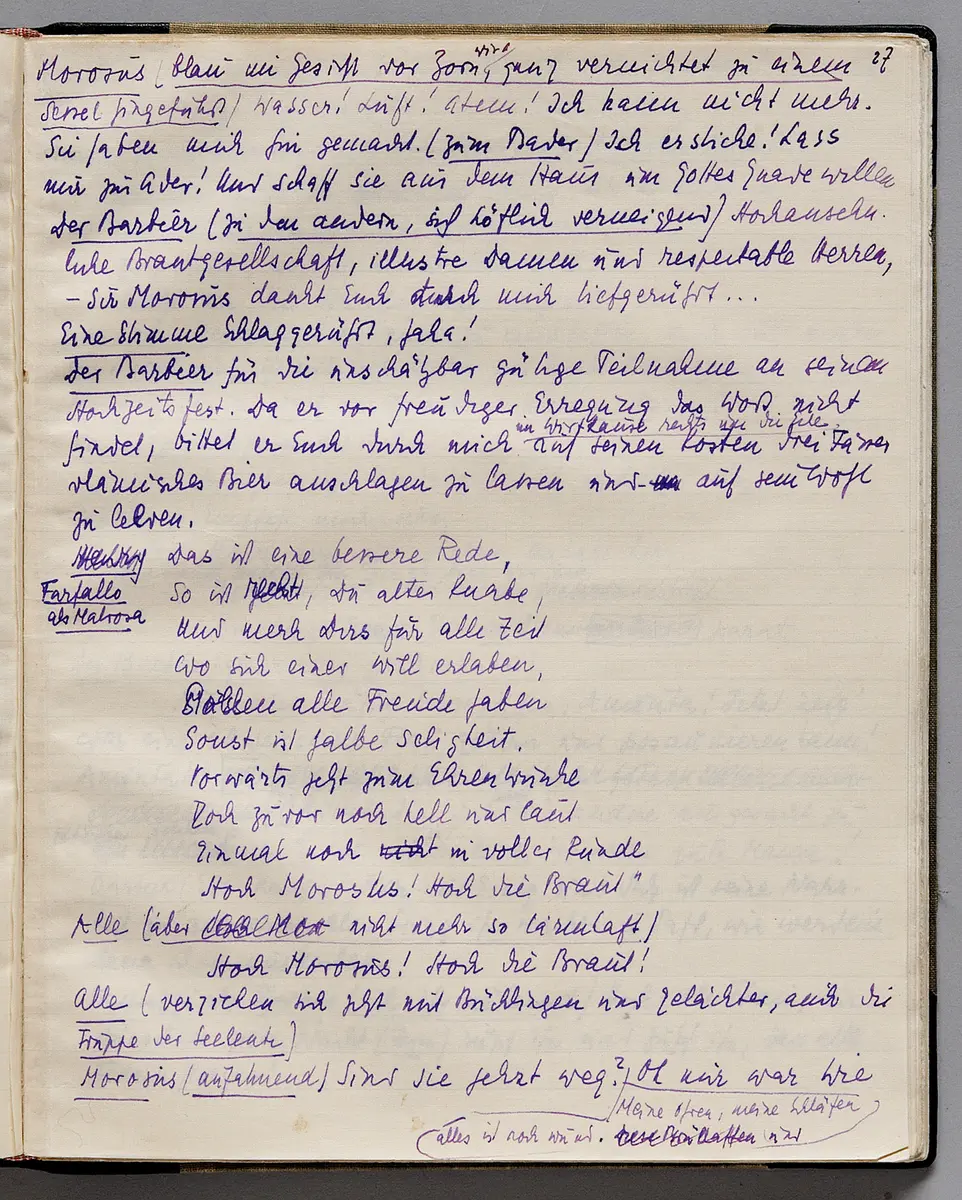 27
Morosus (blau im Gesicht vor Zorn, wird ganz vernichtet zu einem
Sessel hingeführt) Wasser! Luft! Atem! Ich kann nicht mehr.
Sie haben mich hin gemacht. (zum Bader) Ich ersticke! Lass
mir zu Ader! Und schaff sie aus dem Haus um Gottes Gnade willen
Der Barbier (zu den andern, sich höflich verneigend) Hochansehn-
liche Brautgesellschaft, illustre Damen und respectable Herren,
– Sir Morosus dankt Euch durch mich tiefgerührt ...
Eine Stimme Schlaggerührt, haha!
Der Barbier für die unschätzbar gütige Teilnahme an seinem
Hochzeitsfest. Da er vor freudiger Erregung das Wort nicht
im Wirtshause rechts um die Ecke
findet, bittet er Euch durch mich auf seinen Kosten drei Fässer
vlämisches Bier anschlagen zu lassen und auf sein Wohl
zu leeren.
Das ist eine bessere Rede,
Farfallo So ist recht, Du alter Knabe,
als Matrose
Und merk Dirs für alle Zeit
Wo sich einer will erlaben,
Müssen alle Freude haben
Sonst ist halbe Seligkeit.
Vorwärts jetzt zum Ehrentrunke
Doch zuvor noch hell und laut
Einmal noch nicht in voller Runde
Hoch Morosus! Hoch die Braut"
Alle (aber nicht mehr so lärmhaft)
Hoch Morosus! Hoch die Braut!
Alle (verziehen sich jetzt mit Bücklingen und Gelächter, auch die
Truppe der Seeleute)
Morosus (aufatmend) Sind sie jetzt weg? Oh mir war wie
Meine Ohren, meine Schläfen
alles ist noch wund. und